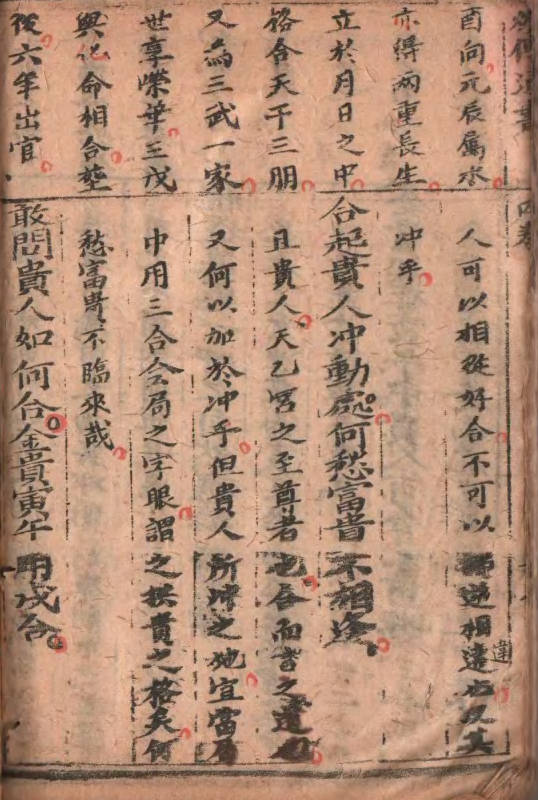 酉向元辰屬水
亦得兩重長生
立於月日之中
格合天干三朋
又為三武一家
世享榮華三戊
與化命相合塟
後六年出官
人可以相從好合不可以相違也及其
違
冲乎
合起貴人冲動處何愁富貴不相逢
且貴人天乙宮之至尊者也合而言之
又何以加於冲乎但貴人所冲之地宜當
中用三合会局之字眼謂之拱貴之格矣何
愁富貴不臨來哉
敢問貴人如何合金貴寅午用戌合